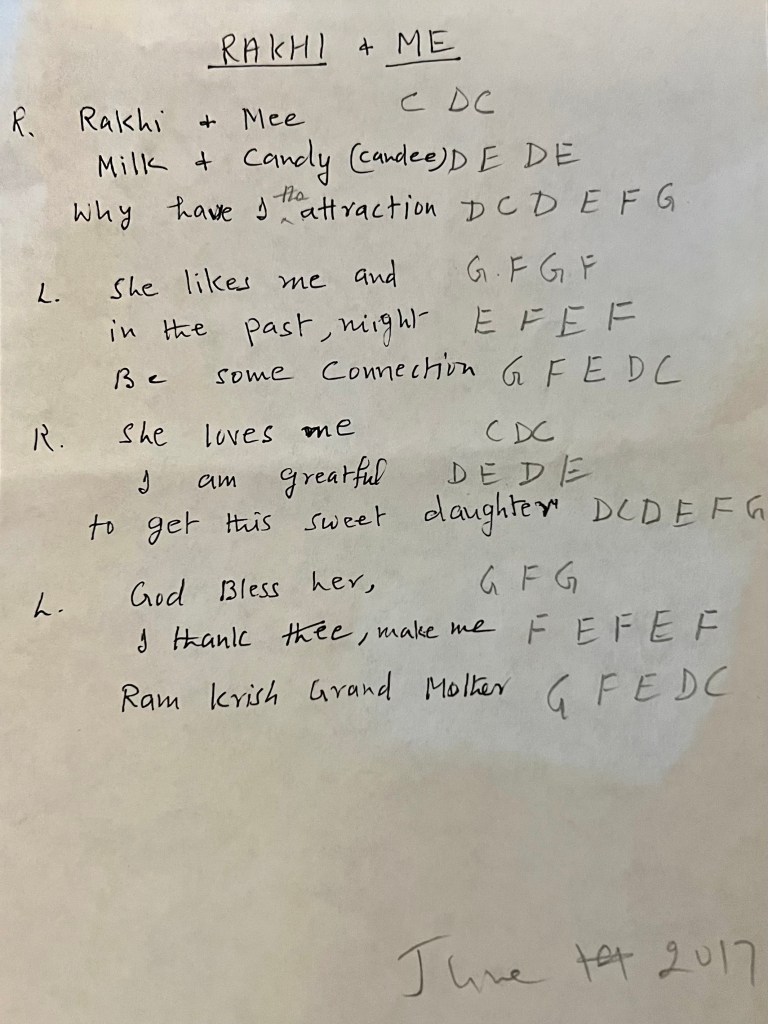 RAKHI + ME
R. Rakhi + Mee C DC
Milk + Candy (candee) D E DE
Why have I the attraction D C D E F G
L. She likes me and G.F G F
in the past, might E F E F
Be some Connection G F E D C
R. She loves me C DC
I am greatful D E D E
to get this sweet daughter D C D E F G
L. God Bless her, G F G
I thank thee, make me F E F E F
Ram Krish Grand Mother G F E D C
June 2017